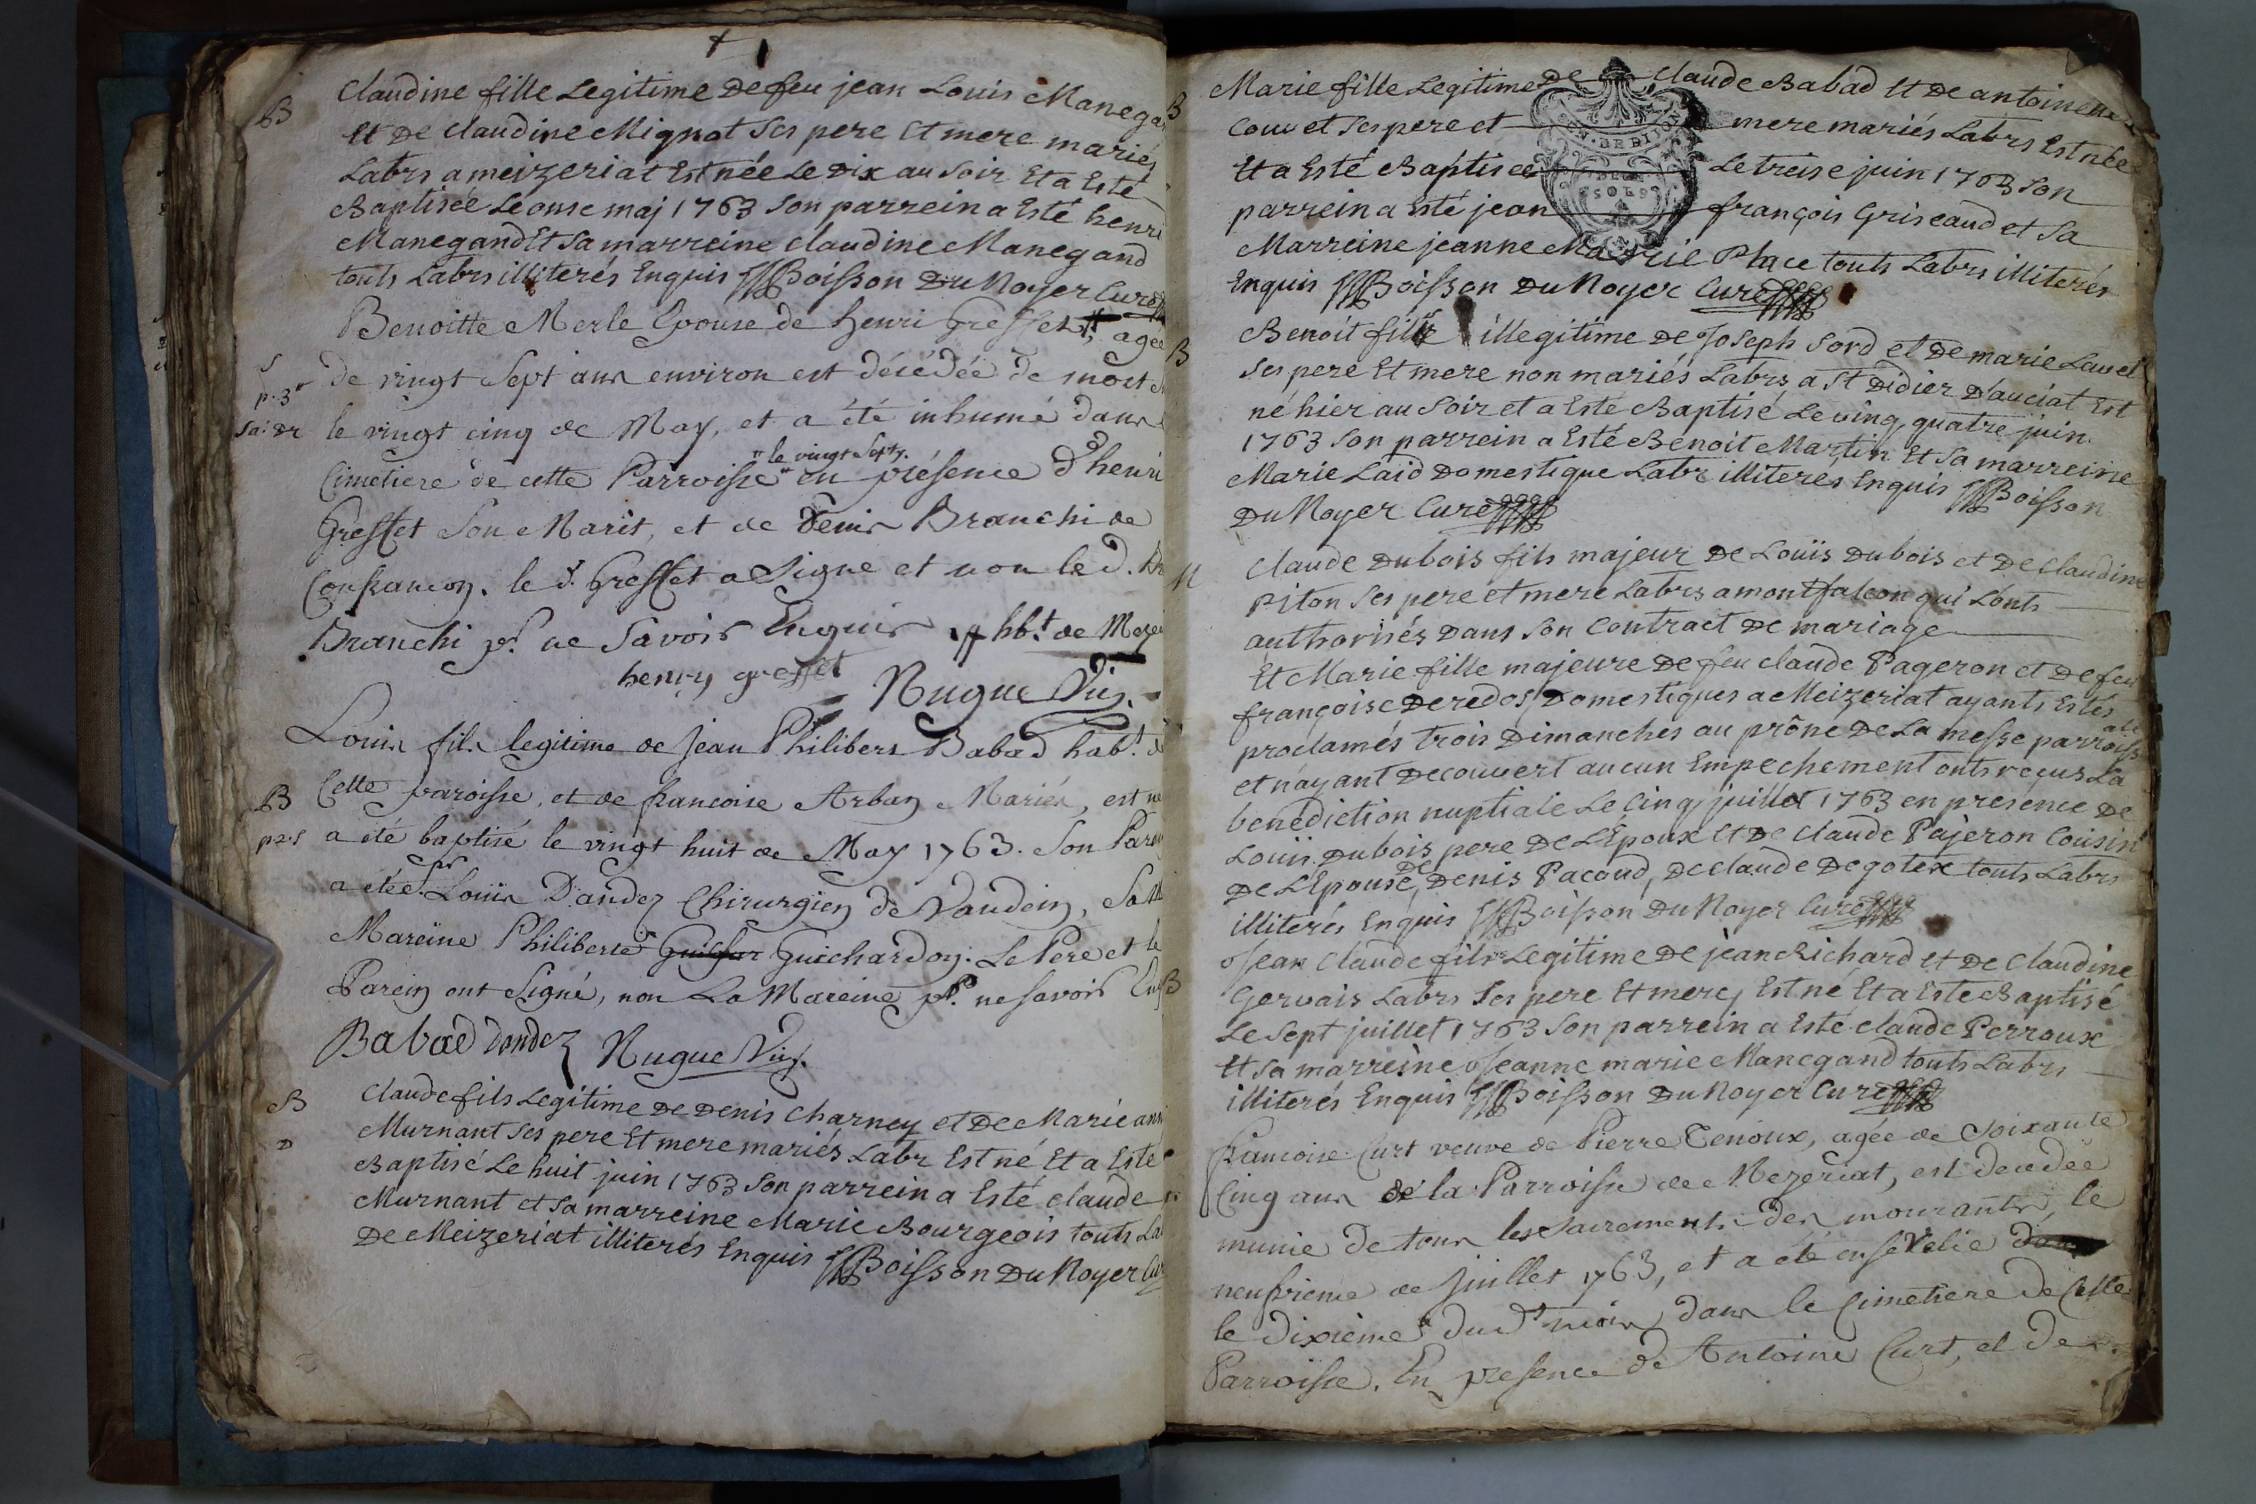 B
Claudine fille Legitime De feu jean Louis Manega
Et De claudine Mignot Ses pere Et mere mariés
Labrs a meizeriat Est née Le Dix au Soir Et a Esté
Baptisée Le onse maj 1763 Son parrein a Esté henri
Manegand Et Sa marreine claudine Manegand
touts Labrs illiterés Enquis Boisson Du Noyer Curé
Benoitte Merle Epouse de henri Gresset, agée
de vingt Sept ans environ est décédée de mort
le vingt cinq de May, et a été inhumé dans
"le vingt Sept.
Cimetiere de cette Parroisse" en présence d'henri
Gresset Son Marit, et de Denis Branchi de
Confrancon. le d. Gresset a Signe et non le d.
Branchi pr. ne Savoir Enquis hbt. de Meze
henry gresset
Nugue Vic.
Louis fils legitime de Jean Philibert Babad habt. d
B
Cette paroisse, et de francoise Arban Mariés, est né
a été baptisé le vingt huit de May 1763. Son Parei
a été Sr. Louis Dandez Chirurgien de Vandein, Sa
Mareine Philiberte Guichardon. Le Pere et le
Parein ont Signé, non La Mareine pr. ne Savoir En
Babad Dandez Nugue Vic.
B
D
Claude fils Legitime De Denis Charney et De Marie ann
Murnant Ses pere Et mere mariés Labr Est né Et a Esté
Baptisé Le huit juin 1763 Son parrein a Esté claude
Murnant et Sa marreine Marie Bourgeois touts La
De Meizeriat illiterés Enquis Boisson Du Noyer Cu
B
Marie fille Legitime De Claude Babad Et De antoinette
Couvet Ses pere et mere mariés Labrs Est née
Et a Esté Baptisée Le treise juin 1763 Son
parrein a Esté jean françois Griseaud et Sa
Marreine jeanne Marie Place touts Labrs illiterés
Enquis Boisson Du Noyer Curé
B
Benoit fils illegitime De Joseph Sord et De marie Lauel
Ses pere Et mere non mariés Labrs a St Didier D'auciat Est
né hier au Soir et a Esté Baptisé Le ving quatre juin
1763 Son parrein a Esté Benoit Martin Et Sa marreine
Marie Laid Domestique Labr illiterés Enquis Boisson
Du Noyer Curé
M
Claude Dubois fils majeur De Loüis Dubois et De Claudine
Piton Ses pere et mere Labrs a montfalcon qui L'onts
authorisés Dans Son Contract De mariage
Et Marie fille majeure De feu claude Pageron et De feu
françoise Deredos Domestiques a Meizeriat ayants Estés
proclamés trois Dimanches au prône De La messe parroissale
et n'ayant Decouvert aucun Empechement onts reçus La
benediction nuptiale Le Cinq juillet 1763 en presence De
Loüis Dubois pere De L'Epoux Et De Claude Pajeron Cousin
De L'Epouse, De Denis Pacoud, De claude Degotex touts Labrs
illiterés Enquis Boisson Du Noyer Curé
Jean Claude fils Legitime De jean Richard et De Claudine
B
Gervais Labrs Ses pere Et mere, Est né Et a Esté Baptisé
Le Sept juillet 1763 Son parrein a Esté claude Perroux
Et Sa marreine Jeanne marie Manegand touts Labrs
illiterés Enquis Boisson Du Noyer Curé
francoise Curt veuve de Pierre Tenoux, agée de Soixante
Cinq ans de la Parroisse de Mezeriat, est decedée
munie de tous les Sacrements des mourants, le
neufvieme de Juillet 1763, et a été ensévelie
le dixieme dud. mois, dans le Cimetiere de Cette
Parroisse. En presence de Antoine Curt, et de